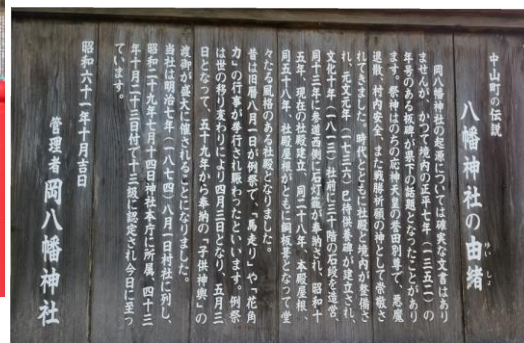 中山町の伝説
八幡神社の由緒
ゆいしょ
岡八幡神社の起源については確実な文書はあり
ませんが、かつて境内の正平七年（一三五二）の
年号のある板碑が県下の話題となったことがあり
ます。祭神はのちの応神天皇の誉田別尊で、悪魔
退散、村内安全、また戦勝祈願の神として崇敬さ
れてきました。時代とともに社殿と境内が整備さ
れ、元文元年（一七三六）巳待供養碑が建立され、
文化十年（一八一三）社前に三十階の石段を造営、
同十三年に参道西側に石灯籠が奉納され、昭和十
五年、現在の社殿建立、同二十八年、本殿屋根、
同五十八年、社殿屋根がともに銅板葺となって堂
々たる風格のある社殿となりました。
昔は旧暦八月一日が例祭で、「馬走り」や「花角
力」の行事が挙行され賑わったといいます。例祭
は世の移り変わりにより四月三日となり、五月三
日となって、五十九年から奉納の「子供神輿」の
渡御が盛大に催されることになりました。
当社は明治七年（一八七四）八月一日村社に列し、
昭和二十九年七月十四日神社本庁に所属、四十三
年十月二十三日付で十三級に認定され今日に至っ
ています。
昭和六十一年十月吉日
管理者 岡八幡神社